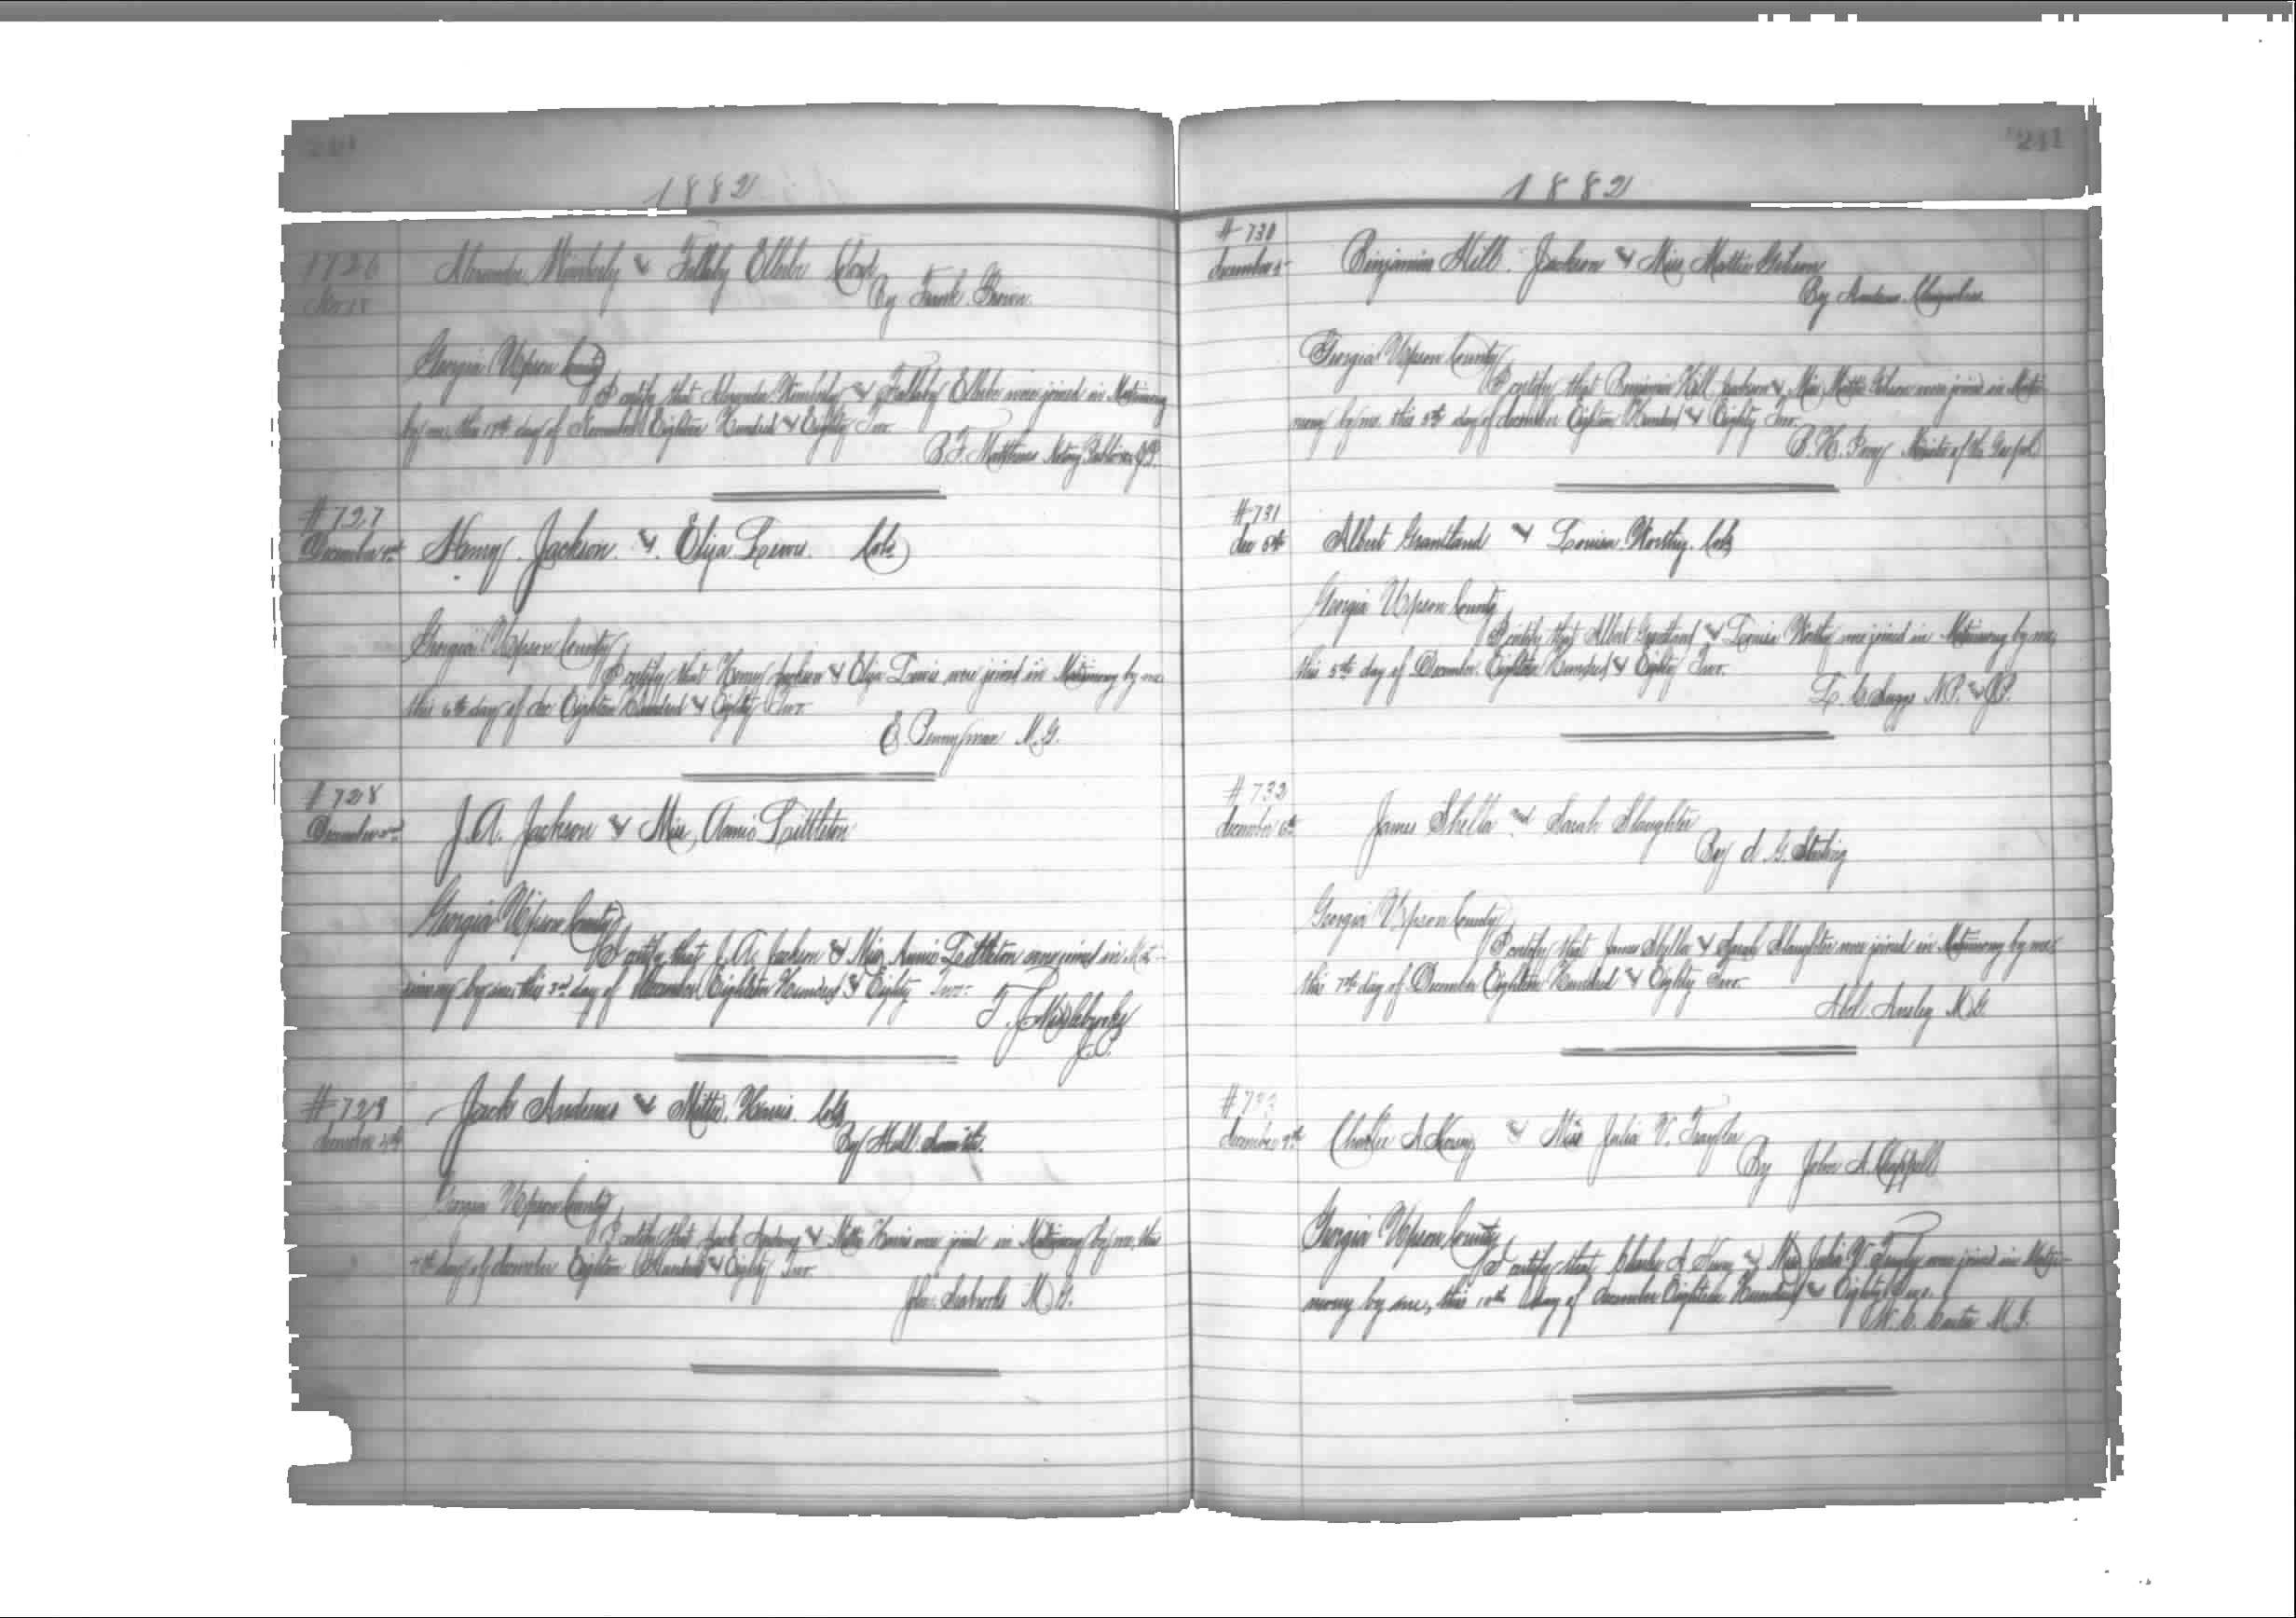 1882
Alexander Kimberly & Elbebe Cold
By Frank Brown.
Georgia Upson County
I certify that Alexander Kimberly & Elbebe were joined in Matrimony
by me, this 17th day of November Eighteen Hundred & Eighty Two.
B. F. Matthews Notary Public & J.P.
#727
December
Henry Jackson & Eliza Lewis. Cold
Georgia Upson County
I certify that Henry Jackson & Eliza Lewis were joined in Matrimony by me
this 6th day of dec Eighteen Hundred & Eighty Two
E. Pennyman M.G.
#728
December 2nd
J. A. Jackson & Miss Annie Littleton
Georgia Upson County
I certify that J. A. Jackson & Miss Annie Littleton were joined in Mat-
rimony by me this 3rd day of December Eighteen Hundred & Eighty Two.
T. J. Middlebrooks
#729
december 4th
Jack Andrews & Mittie Harris. Cold
By
Georgia Upson County
I certify that Jack Andrews & Mittie Harris were joined in Matrimony by me, this
day of december Eighteen Hundred & Eighty Two
John Seabrooks M.G.
241
1882
#730
december 5
Benjamin Hill Jackson & Miss Mattie Gibson
By
Georgia Upson County
I certify that Benjamin Hill Jackson & Miss Mattie Gibson were joined in Matri-
mony by me this 5th day of december Eighteen Hundred & Eighty Two
B. H. Perry Minister of the Gospel
#731
dec 5th
Albert Grantland & Louisa Worthy. Cold
Georgia Upson County
I certify that Albert Grantland & Louisa Worthy were joined in Matrimony by me,
this 5th day of December Eighteen Hundred & Eighty Two.
L. C. Suggs N.P. & J.P.
#732
december 6th
James Shella & Sarah Slaughter
By d. G. Starling
Georgia Upson County
I certify that James Shella & Sarah Slaughter were joined in Matrimony by me
this 7th day of December Eighteen Hundred & Eighty Two.
Abl. Ansley M.G.
#733
december 9th
Charlie A. & Miss Julia V.
By John A. Chappell
Georgia Upson County
I certify that Charlie A. & Miss Julia V. were joined in Matri-
mony by me, this 10th day of december Eighteen Hundred & Eighty Two.
W. C. Carter M.G.